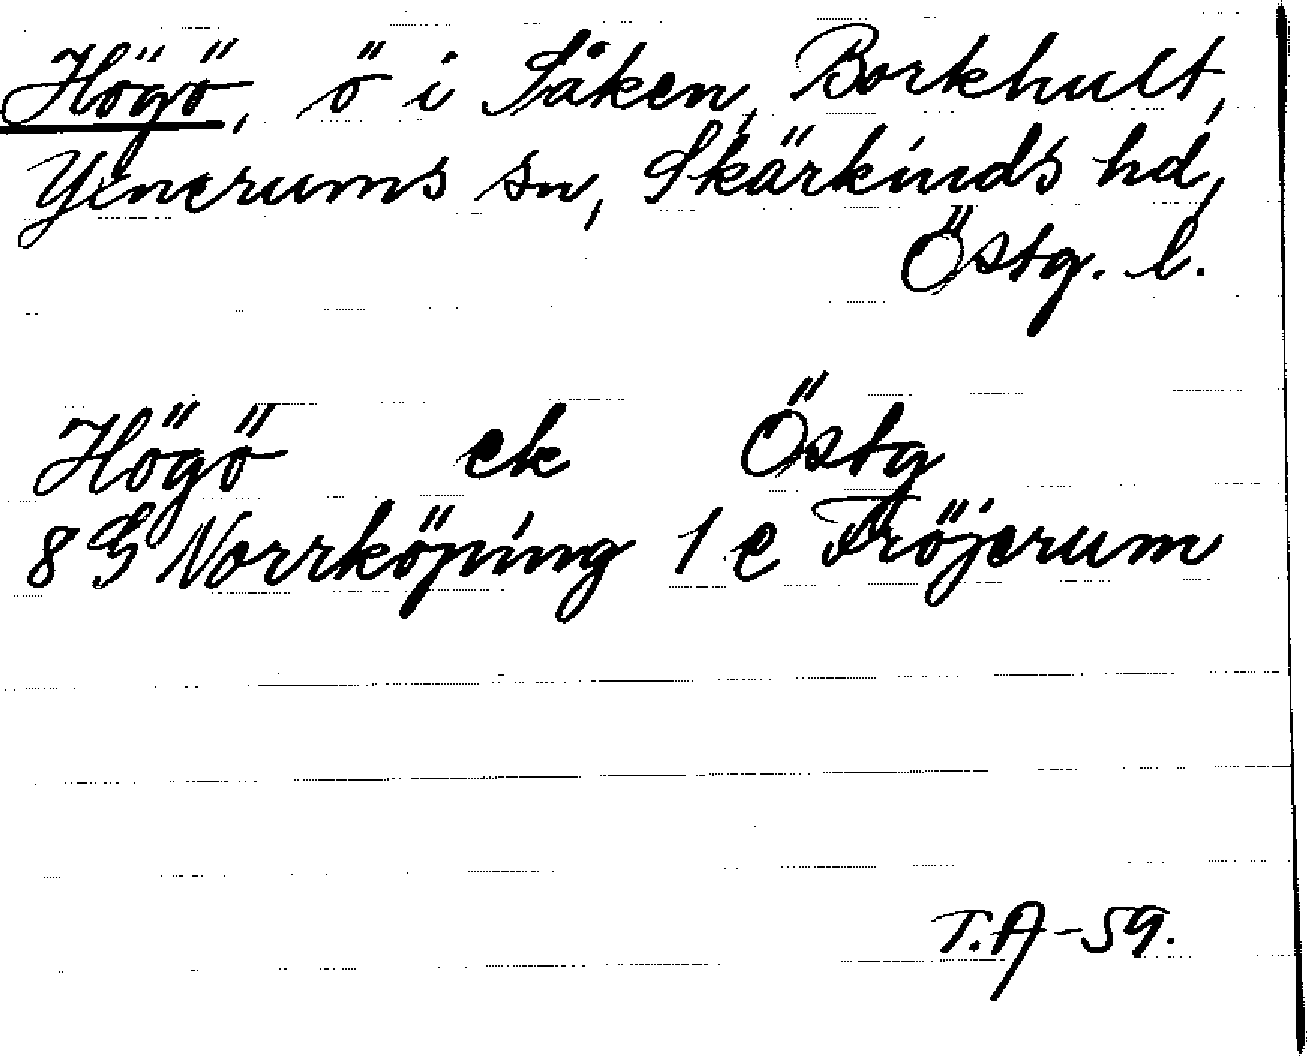 Högö, ö i Såken, Borkhult,
Yxnerums sn, Skärkinds hd,
Östg. l.
Högö ek Östg
8 G Norrköping 1 e Fröjerum
T.A-59.